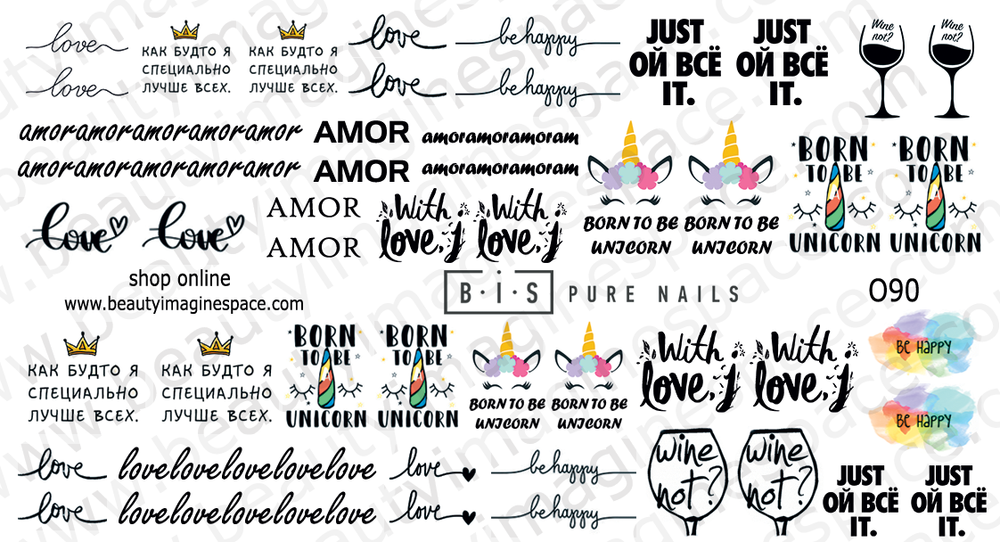 love
love
КАК БУДТО Я
СПЕЦИАЛЬНО
ЛУЧШЕ ВСЕХ.
КАК БУДТО Я
СПЕЦИАЛЬНО
ЛУЧШЕ ВСЕХ.
love
love
be happy
be happy
JUST
ОЙ ВСЁ
IT.
JUST
ОЙ ВСЁ
IT.
Wine
not?
Wine
not?
amoramoramoramoramor
amoramoramoramoramor
AMOR
AMOR
amoramoramoram
amoramoramoram
BORN TO BE
UNICORN
BORN TO BE
UNICORN
BORN
TO BE
UNICORN
BORN
TO BE
UNICORN
love
love
AMOR
AMOR
With
love,
With
love,
shop online
www.beautyimaginespace.com
B·i·S PURE NAILS
O90
КАК БУДТО Я
СПЕЦИАЛЬНО
ЛУЧШЕ ВСЕХ.
КАК БУДТО Я
СПЕЦИАЛЬНО
ЛУЧШЕ ВСЕХ.
BORN
TO BE
UNICORN
BORN
TO BE
UNICORN
BORN TO BE
UNICORN
BORN TO BE
UNICORN
With
love,
With
love,
BE HAPPY
BE HAPPY
love
love
lovelovelovelovelove
lovelovelovelovelove
love
love
be happy
be happy
wine
not?
wine
not?
JUST
ОЙ ВСЁ
IT.
JUST
ОЙ ВСЁ
IT.